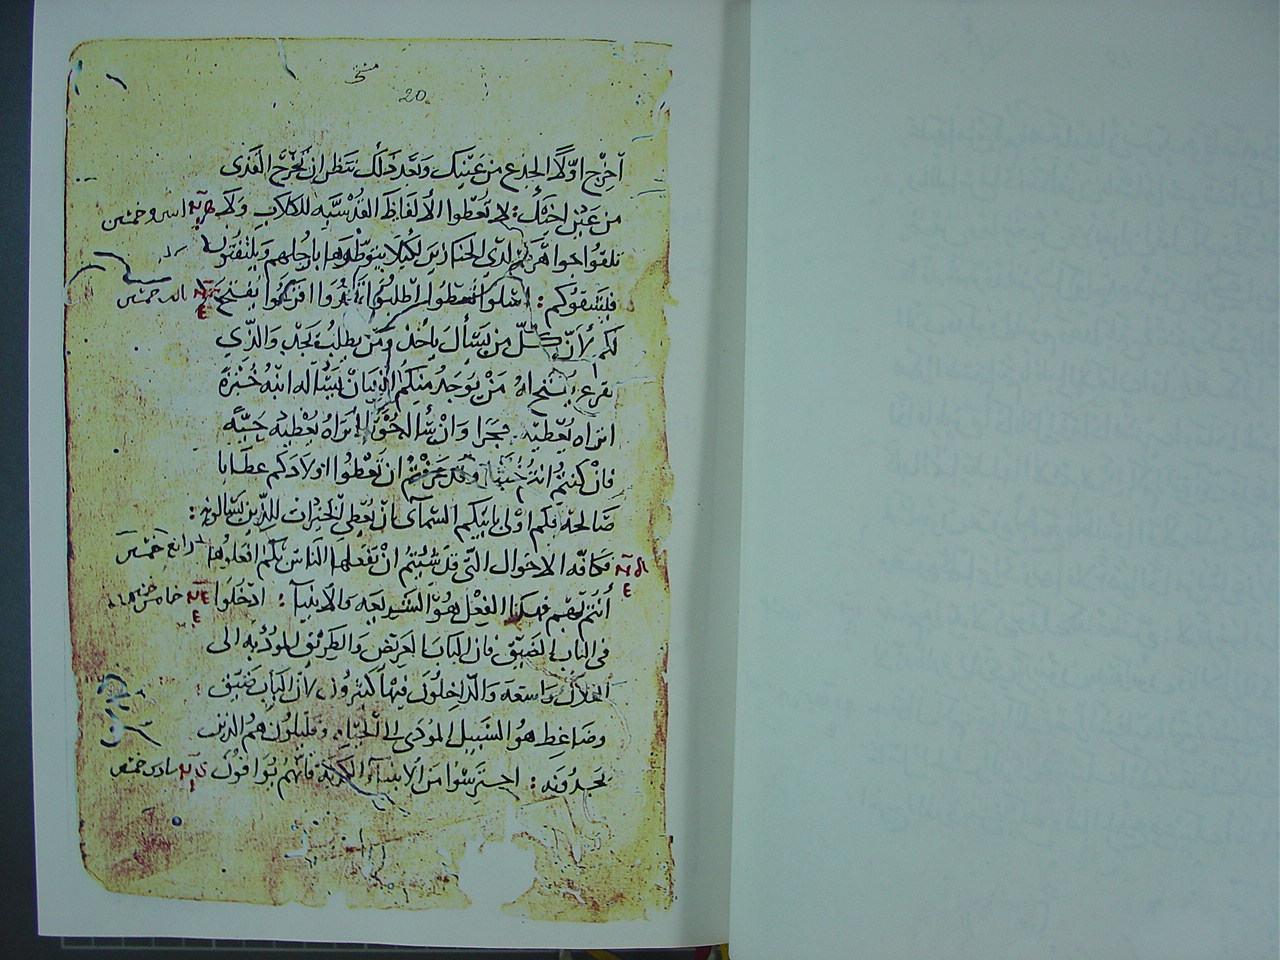 20
اخرج اوّلًا الجذع من عَيْنِيك وبَعْد ذَلك تنظر ان تُخْرِج القَذَى
من عَيْن اخيك: لا تُعْطوا الالفَاظ القُدْسيّه للكلابِ وَلَا
تلقوا جواهركم لدى الخنازير لكيلا يتوطّوها بارجلهم ويلتفتون
فيشقوكم: اسلوا تعطوا اطلبُوا تجدوا اقرعوا يُفتح
لكم لأنّ كلّ من يَسْأل يأخذ ومَن يطلب يَجد والّذِي
يقرع يُفتح له مَنْ يوجَدُ منكم يَسْأله ابنُهُ خُبْزةً
اتراه يُعْطيه حجَرا وَان سأله حُوْتًا اتراهُ يُعْطيه حَيّةً
فان كنتُم انتُم خُبثًا وقد عَرَفْتُم ان تَعْطوا اولادكم عطَايا
صَالحه فكم اوْلى بابيكم السّمآى بان يُعْطِى الخيَرات للّذِين يَسَالونه:
فكافّه الاحوال الّتى قد شئتم انْ يفعلها النّاس بكم افعلوها رابع خمسين
أنتم بهم فهكذا الفِعْل هوّ الشريعه والانبيآ: ادخلُوا خامس خمسين
فى الباب الضّيّق فان البَابَ العريض والطريق المؤديه الى
الهلاك واسعه والدّاخلُونَ فيها كثيرون لانّ الباب ضَيّق
وضَاغِط هوُ السَّبيل المُودى الى الحيَاه وقليلون هم الذين
يَجدُونه: احترسُوا من الانبيآ الكذبة فانّهُم يُوافونَ سادس خمسين